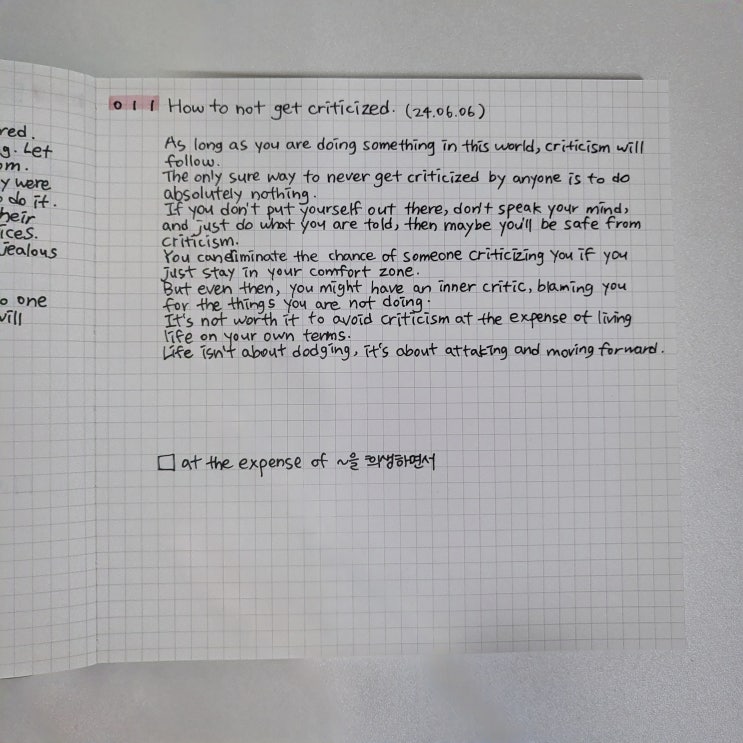 red.
g. Let
om.
y were
do it.
heir
ices.
jealous
o one
will
011 How to not get criticized. (24.06.06)
As long as you are doing something in this world, criticism will
follow.
The only sure way to never get criticized by anyone is to do
absolutely nothing.
If you don't put yourself out there, don't speak your mind,
and just do what you are told, then maybe you'll be safe from
criticism.
You can eliminate the chance of someone criticizing you if you
just stay in your comfort zone.
But even then, you might have an inner critic, blaming you
for the things you are not doing.
It's not worth it to avoid criticism at the expense of living
life on your own terms.
Life isn't about dodging, it's about attaking and moving forward.
□ at the expense of ~을 희생하면서